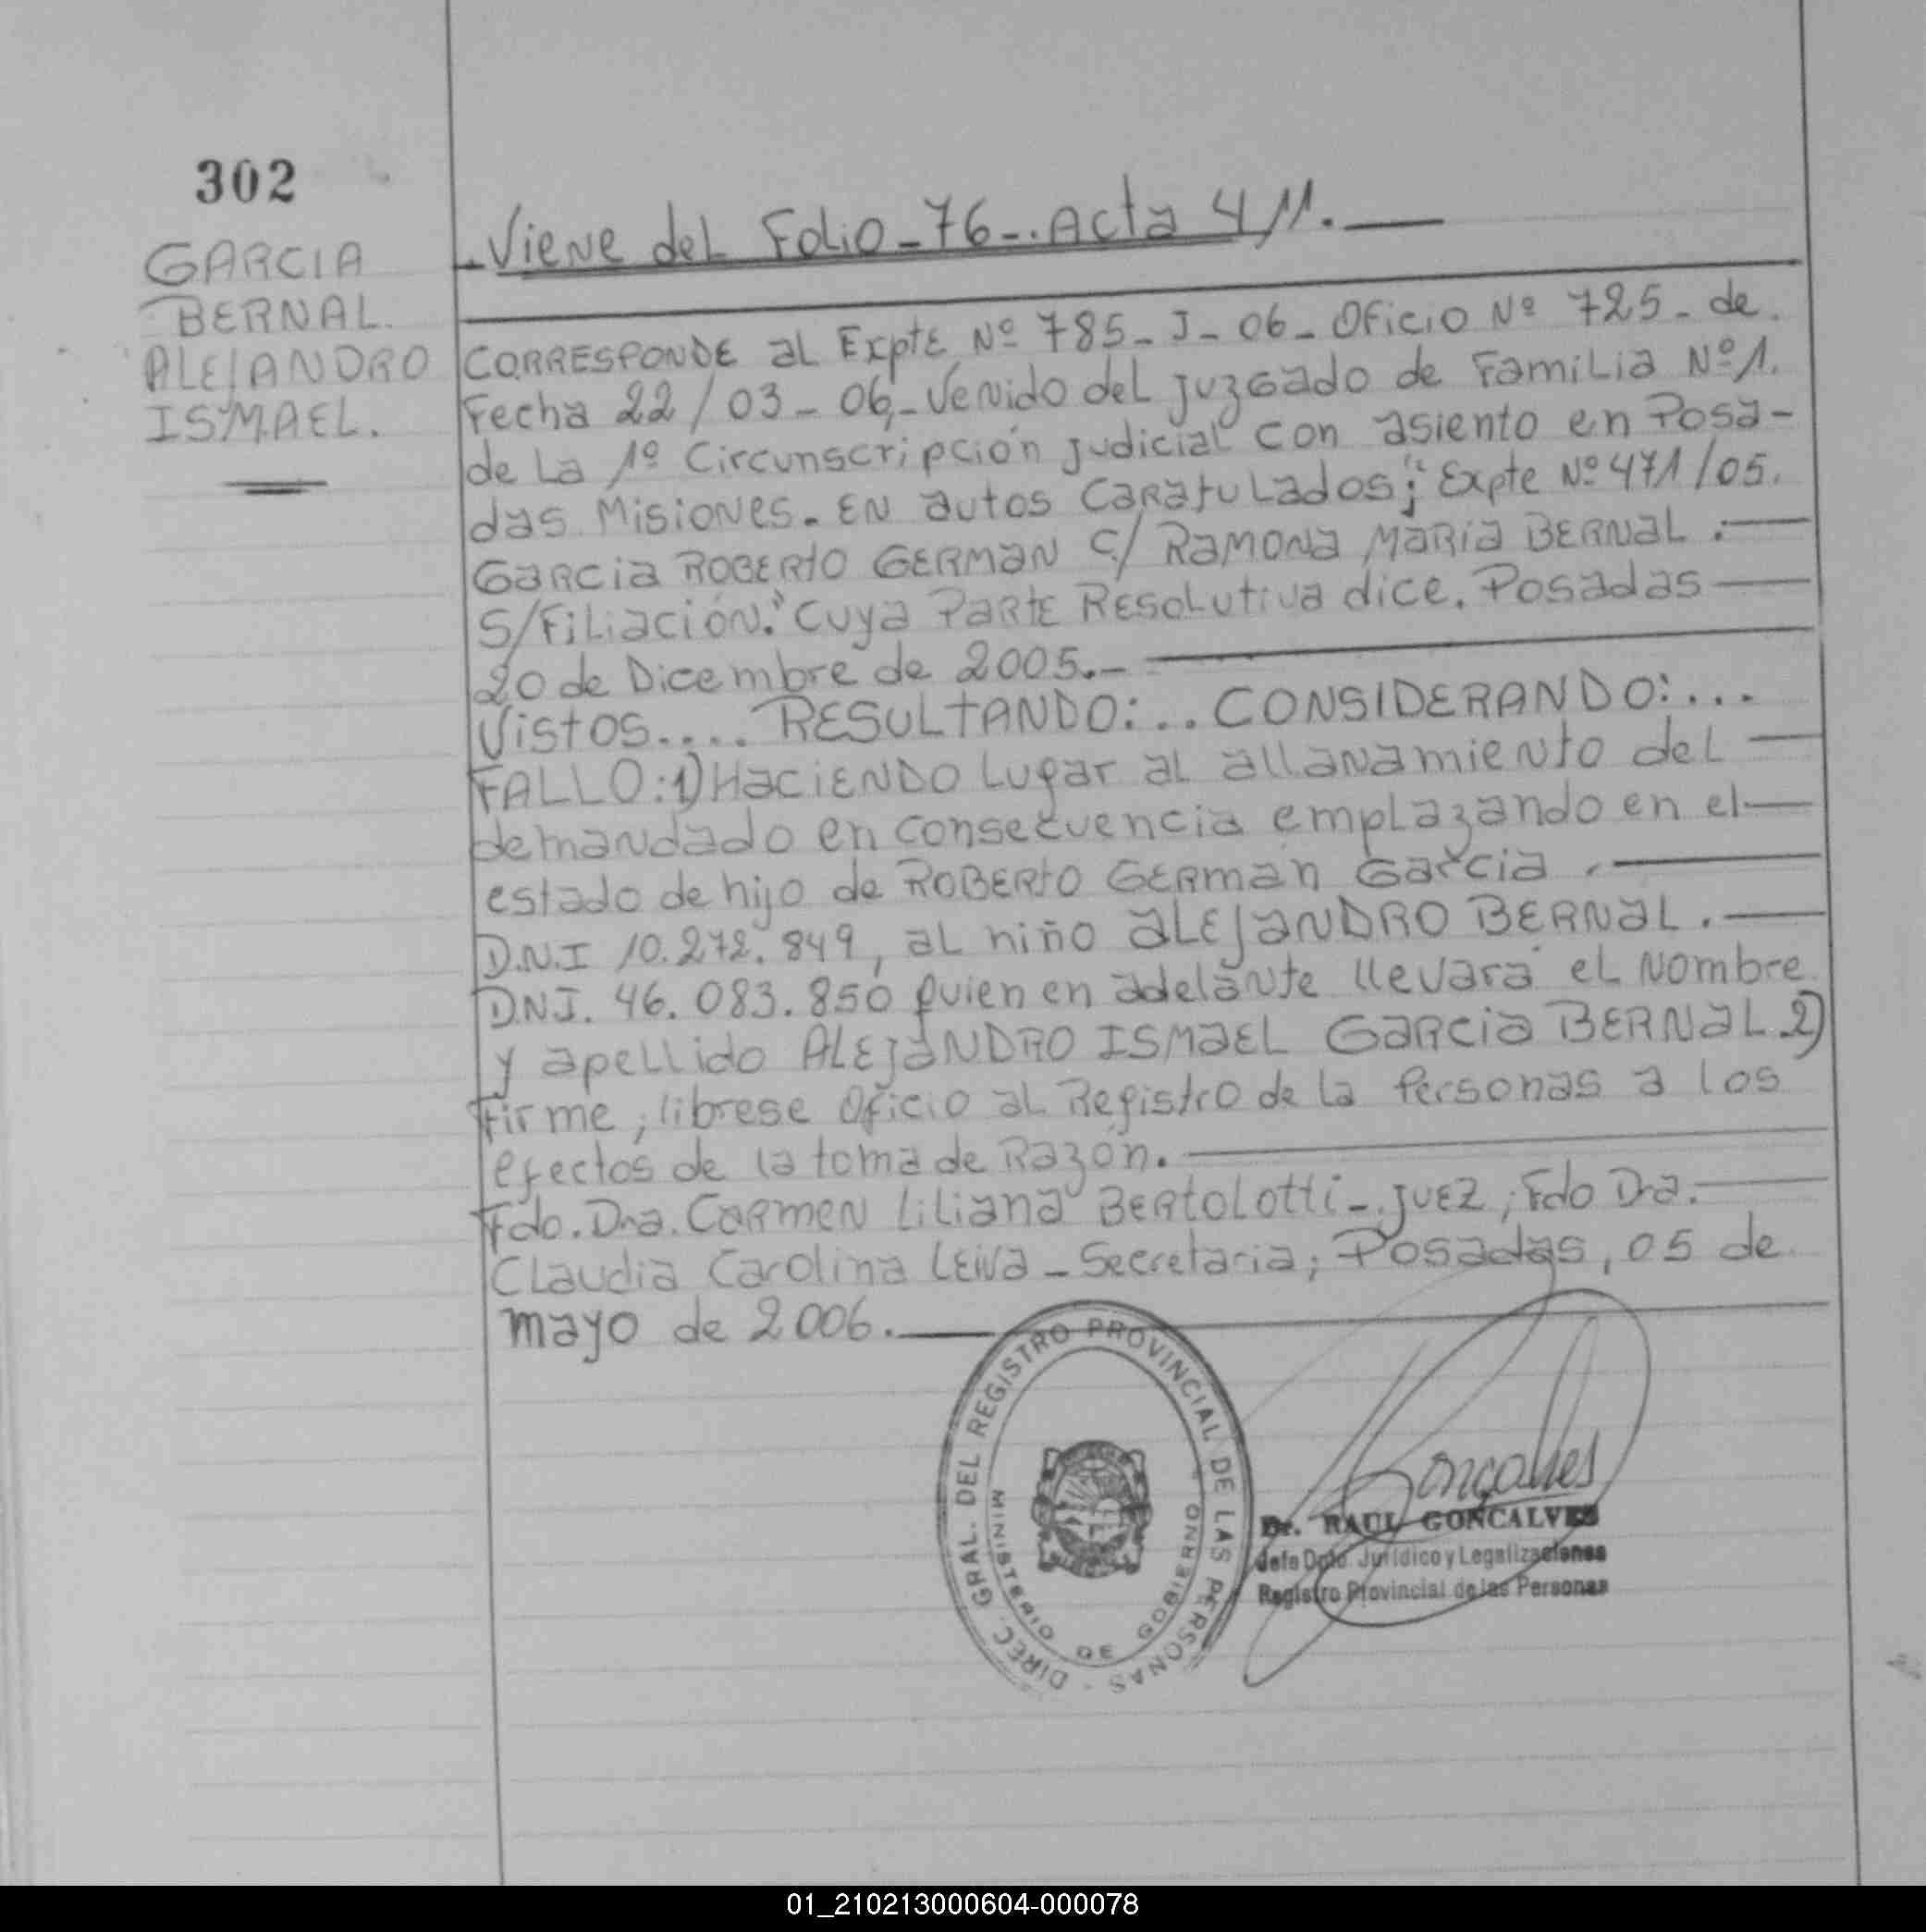 302
GARCIA
BERNAL.
ALEJANDRO
ISMAEL.
-Viene del Folio-76-.Acta 411.
CORRESPONDE al Expte Nº 785-J-06-Oficio Nº 725-de.
Fecha 22/03-06,-Venido del juzgado de Familia Nº1.
de la 1º Circunscripción judicial con asiento en Posa-
das Misiones. EN autos caratulados; "Expte Nº471/05.
Garcia ROBERTO GERMAN C/ RAMONA MARIA BERNAL.
S/Filiación." cuya PARTE Resolutiva dice. Posadas
20 de Dicembre de 2005.-
Vistos.... RESULTANDO:... CONSIDERANDO:...
FALLO:1)HACIENDO lugar al allanamiento del
demandado en consecuencia emplazando en el
estado de hijo de ROBERTO GERMAN Garcia.
D.N.I 10.272.849, al niño ALEJANDRO BERNAL.
DNI. 46.083.850 quien en adelante llevara el nombre
y apellido ALEJANDRO ISMAEL GARCIA BERNAL.2)
Firme, librese oficio al Registro de la Personas a los
efectos de la toma de Razón.
Fdo. Dra. CARMEN Liliana BERTOLOTTI-.JUEZ; Fdo Dra.
Claudia Carolina Leiva-Secretaria; Posadas, 05 de
mayo de 2006.
DIREC. GRAL. DEL REGISTRO PROVINCIAL DE LAS PERSONAS -
MINISTERIO DE GOBIERNO
Gonçalves
Dr. RAUL GONCALVES
Jefe Dpto. Jurídico y Legalizaciones
Registro Provincial de las Personas
01_210213000604-000078